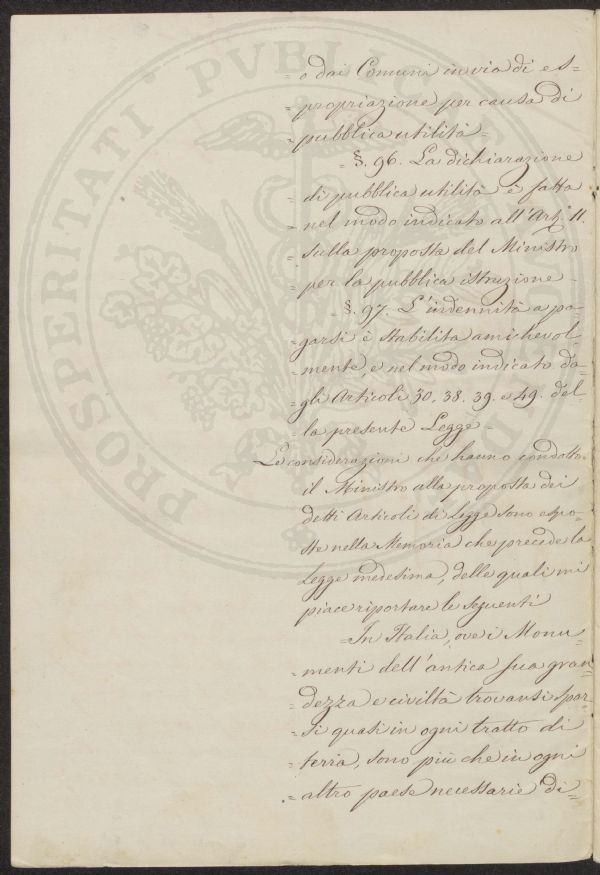 = o dai Comuni in via di es=
= propriazione per causa di
= pubblica utilità =
= §. 96. La dichiarazione
= di pubblica utilità è fatta
= nel modo indicato all'Art.° 11.
= sulla proposta del Ministro
= per la pubblica istruzione =
= §. 97. L'indennità a pa=
= garsi è stabilita amichevol=
= mente, e nel modo indicato da=
= gli Articoli 30. 38. 39. e 49. del=
= la presente Legge =
Le considerazioni che hanno condotto
il Ministro alla proposta dei
detti Articoli di Legge sono espo=
ste nella Memoria che precede la
Legge medesima, delle quali mi
piace riportare le seguenti
= In Italia, ove i Monu=
= menti dell'antica sua gran=
= dezza e civiltà trovansi spar=
= si quasi in ogni tratto di
= terra, sono più che in ogni
= altro paese necessarie di=
PROSPERITATI PVBLICAE